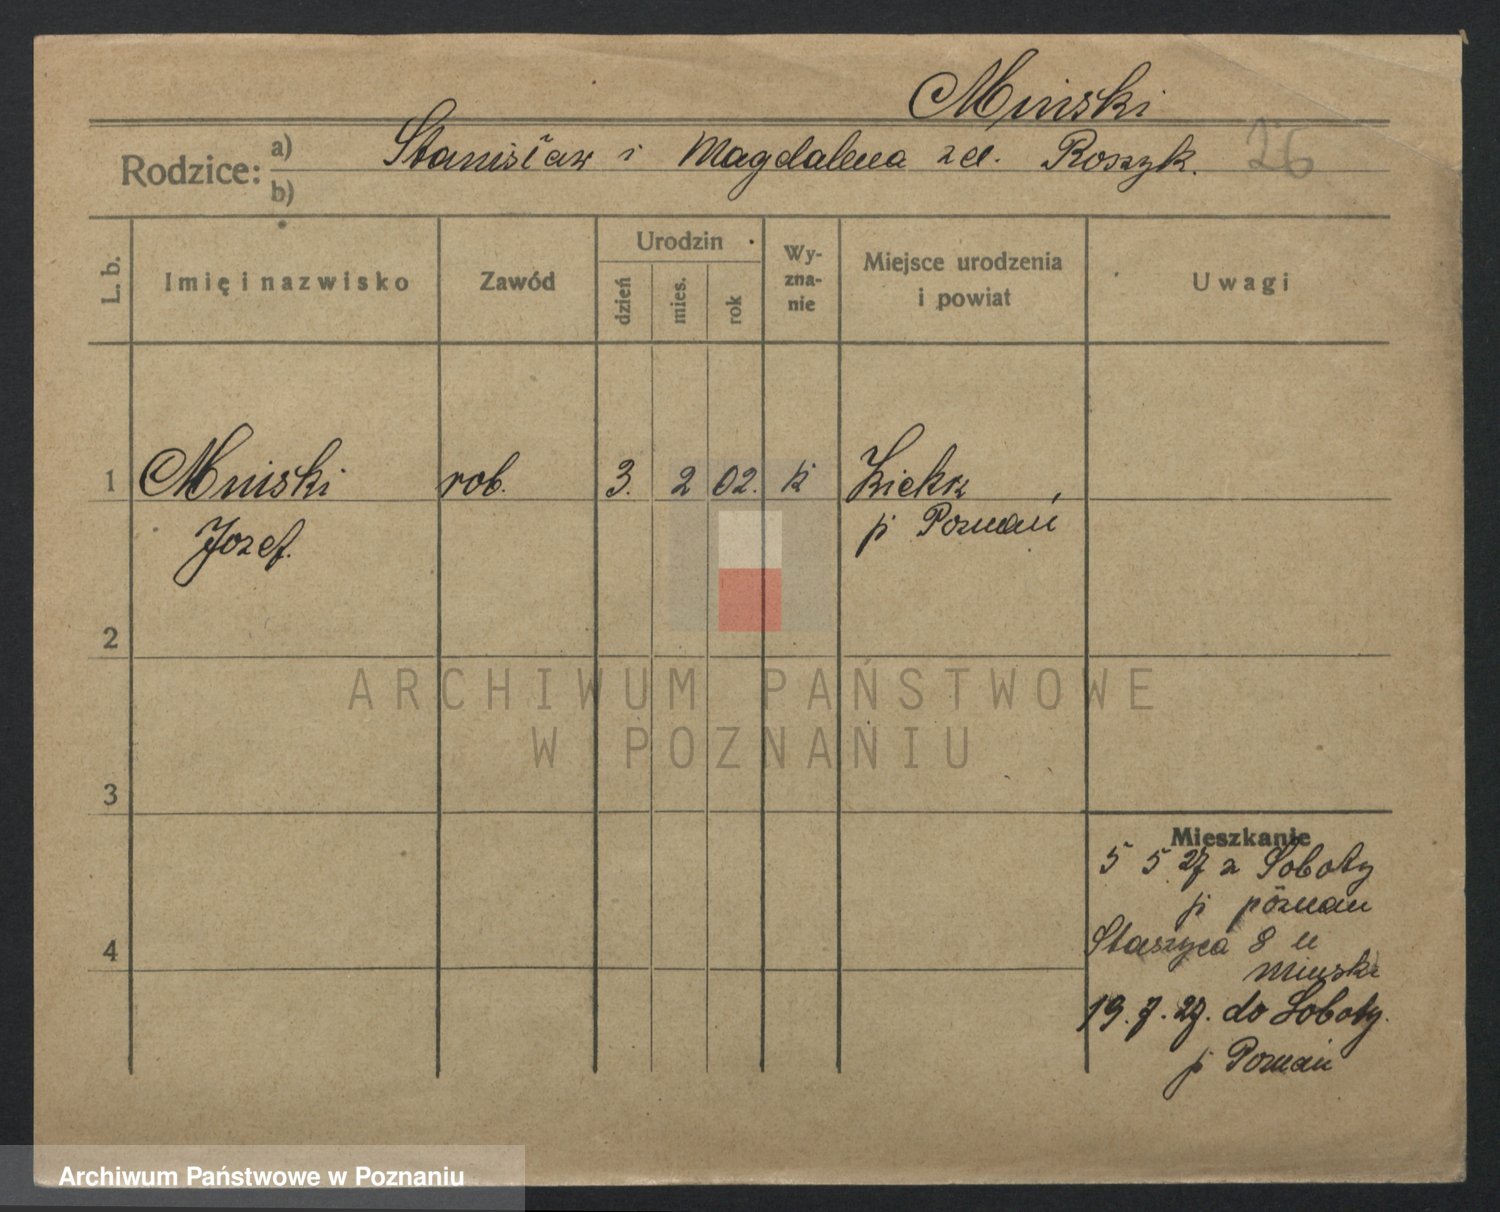 Miński
Rodzice: a) Stanisław i Magdalena zd. Roszyk. 26
b)
L. b. Imię i nazwisko Zawód Urodzin dzień mies. rok Wy-zna-nie Miejsce urodzenia i powiat Uwagi
1 Miński rob. 3. 2 02. k Kiekrz
Jozef. p Poznań
2
ARCHIWUM PAŃSTWOWE
W POZNANIU
3
Mieszkanie
5 5 27 z Soboty
p poznań
4 Staszyca 8 u
Miński
19. 7. 27. do Soboty.
p Poznań
Archiwum Państwowe w Poznaniu